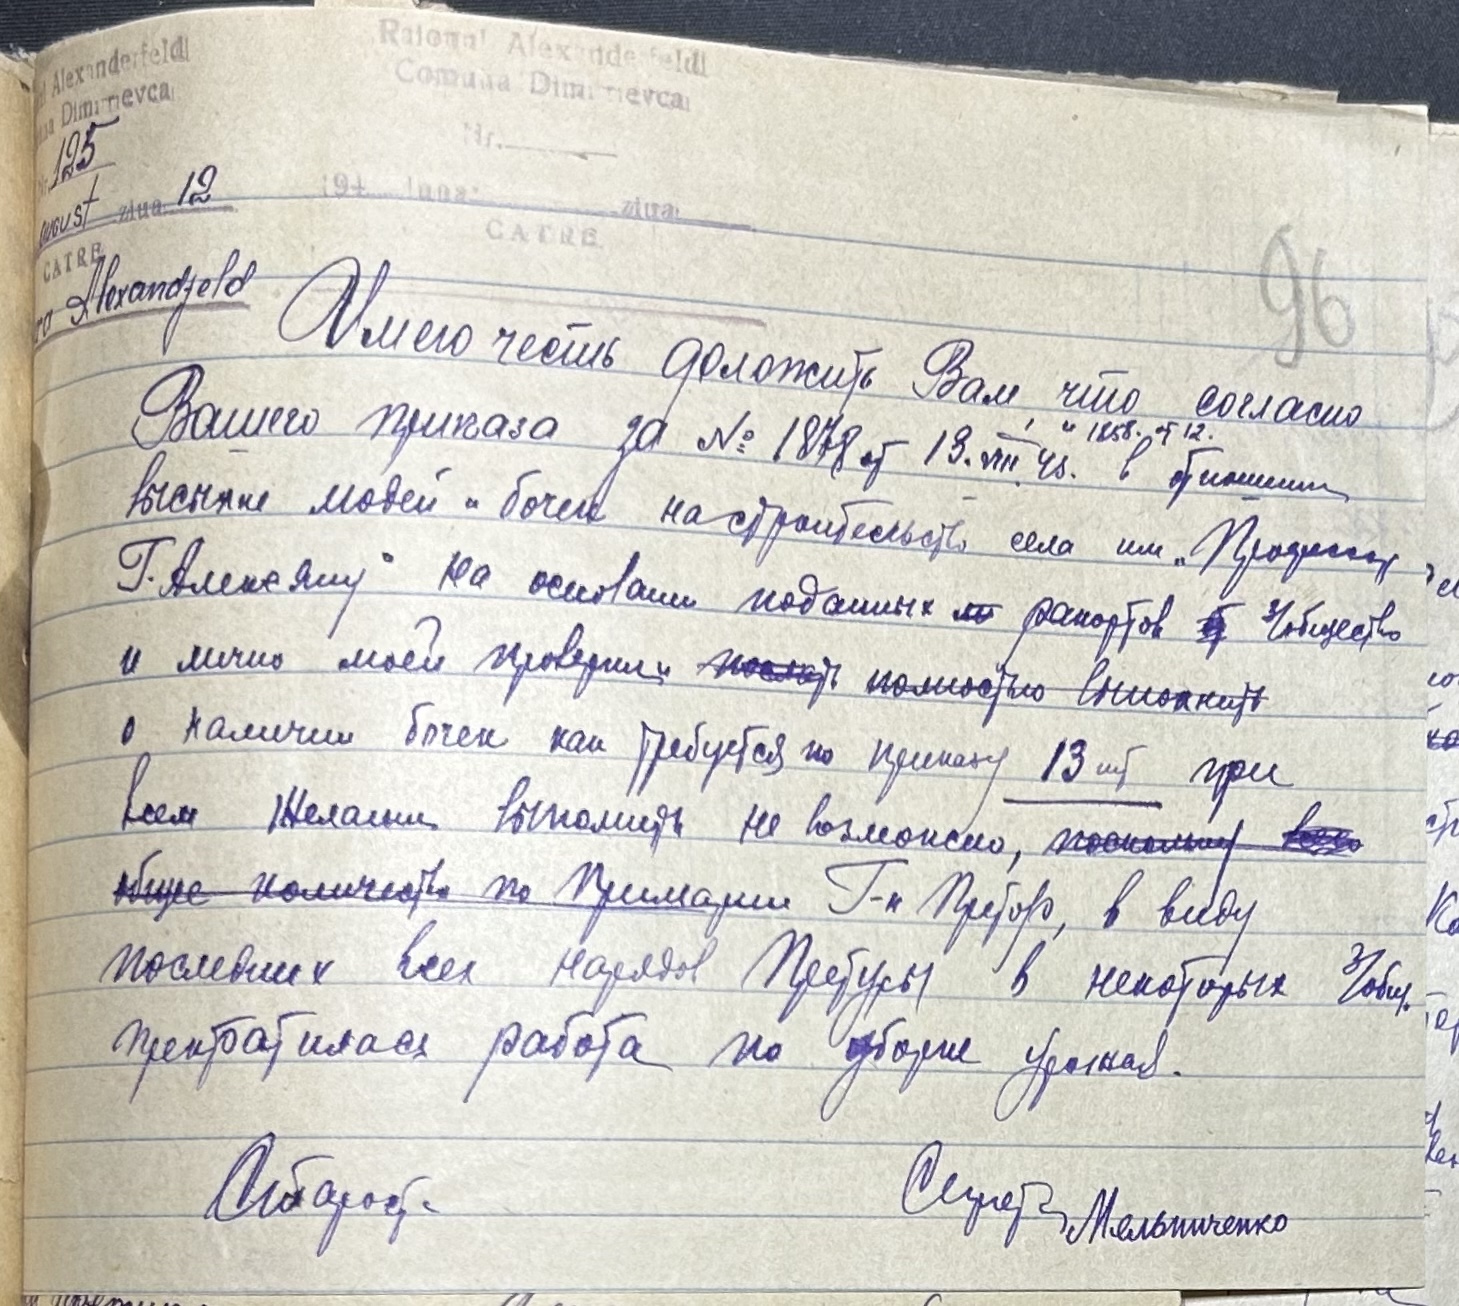 Alexanderfeld
Dimitrievca
Nr. 125
august ziua 12
CATRE
Alexandfeld
Raionul Alexanderfeld
Comuna Dimitrievca
Nr.
194 luna ziua
CATRE
96
Имею честь доложить Вам, что согласно
Вашего приказа за № 1878 от 13. VIII 43. и 1858. от 12. в отношении
высылке людей и бочек на строительство села им. „Професор
Г. Алексяну" на основании поданных рапортов з/общество
и лично моей проверки послать полностью выполнить
о наличии бочек как требуется по приказу 13 шт при
всем желании выполнить не возможно, поскольку
общее количество по Примарии Г-н Претор, в виду
последних всех нарядов Претуры в некоторых з/общ.
прекратилась работа по уборке урожая.
Староста
Секрет. Мельниченко